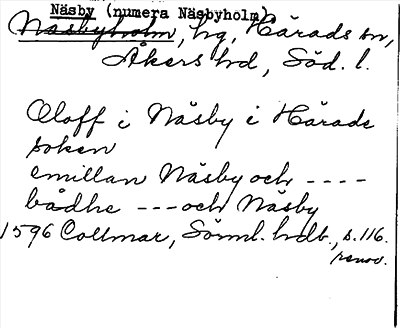 Näsby (numera Näsbyholm)
Näsbyholm, hg, Härads sn,
Åkers hd, Söd. l.
Oloff i Näsby i Härade
soken
emillan Näsby och ----
bådhe --- och Näsby
1596 Collmar, Sörml. hdb., s. 116.
renov.